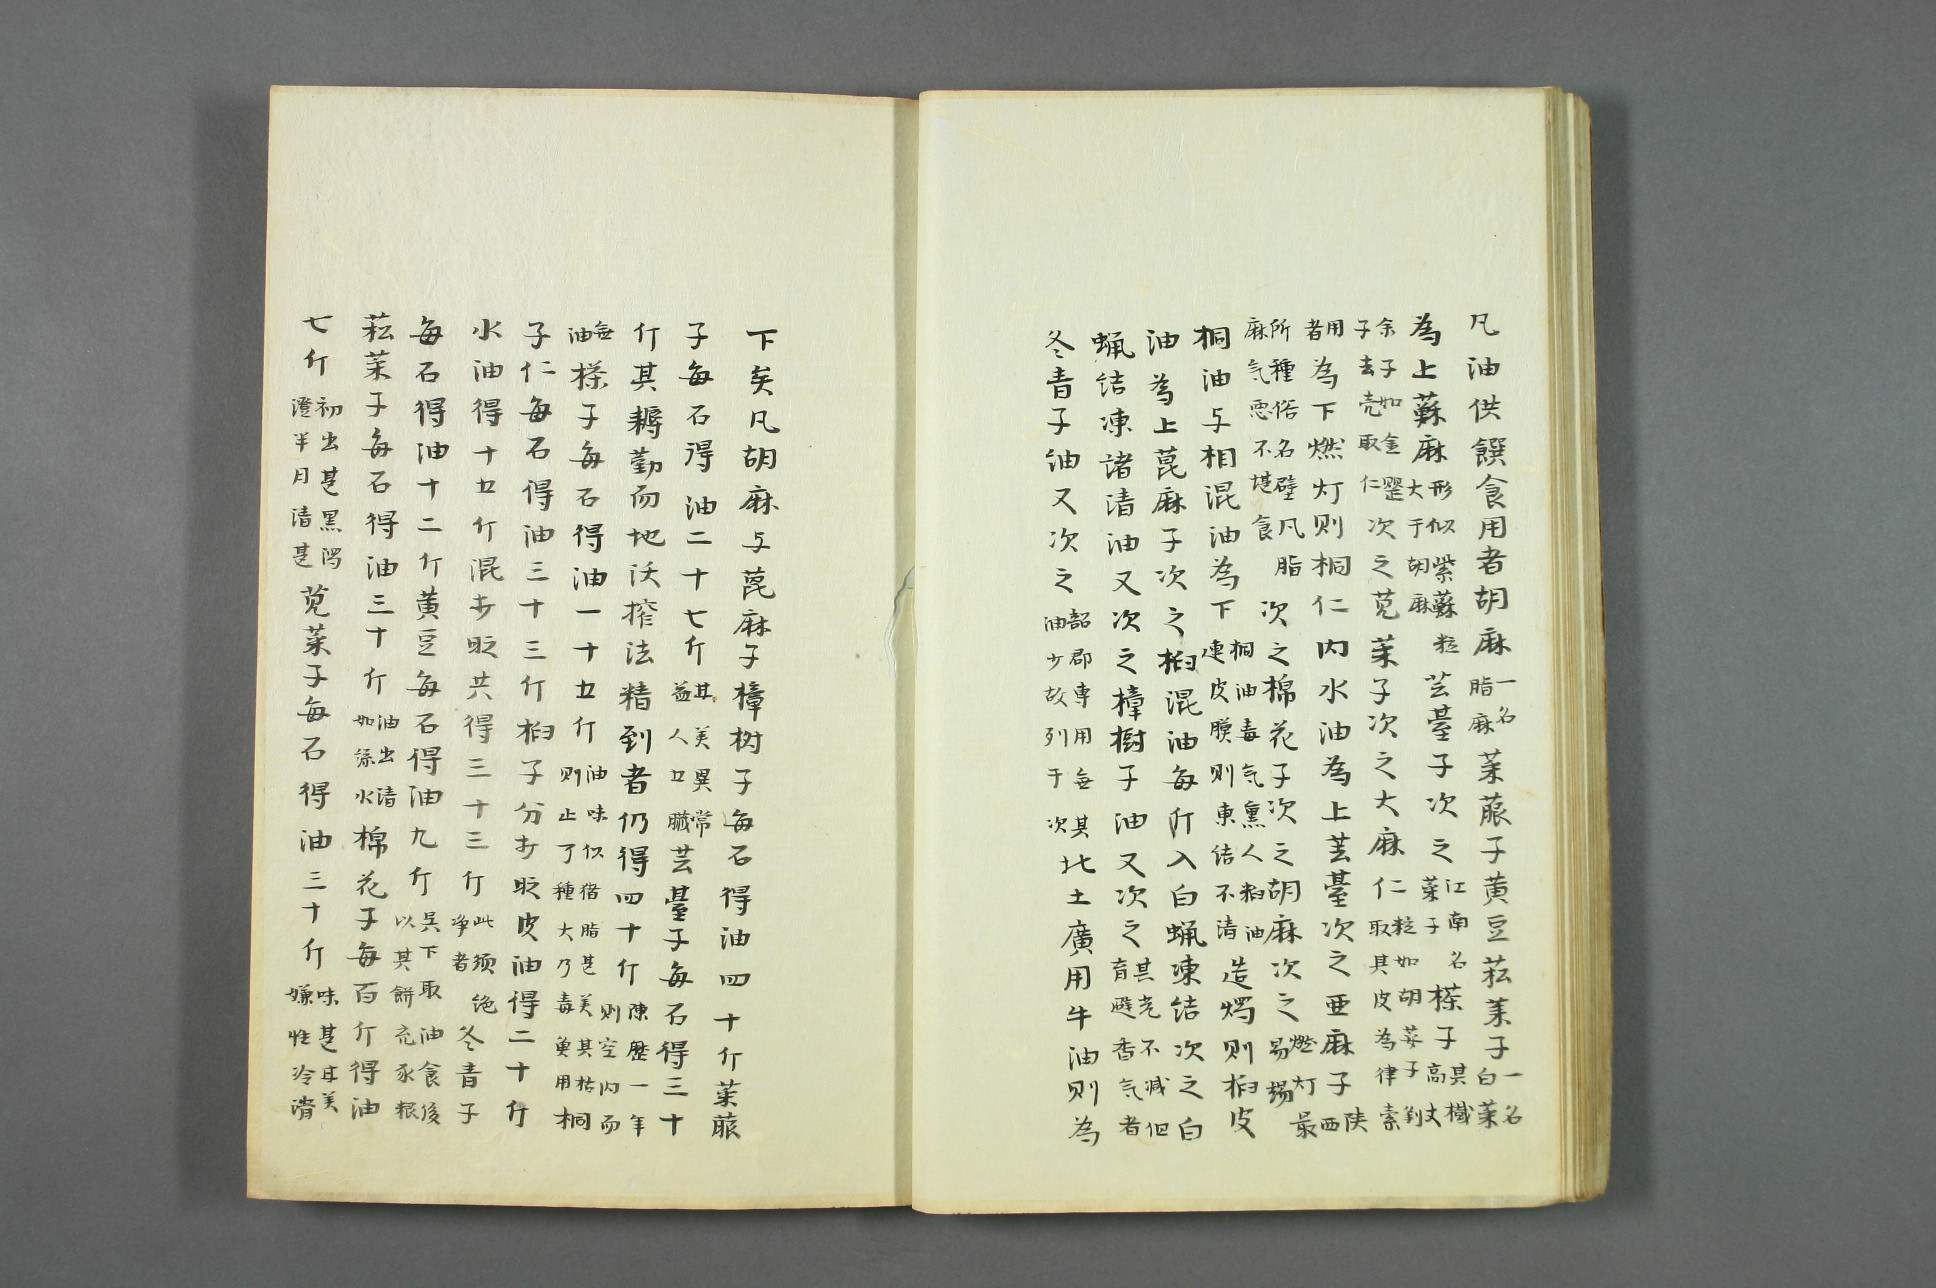 凡油供饌食用者胡麻一名脂麻萊菔子黄豆菘菜子一名白菜
為上蘇麻形似紫蘇粒大于胡麻芸薹子次之江南名菜子㮋子其樹高丈
余子如金罌子去壳取仁次之莧菜子次之大麻仁粒如胡荽子剥取其皮為律索
用者為下燃灯则桐仁内水油為上芸薹次之亜麻子陕西
所種俗名壁脂麻气悪不堪食凡次之棉花子次之胡麻次之燃灯最易竭
桐油与桕混油為下桐油毒气熏人桕油連皮膜则凍结不清造燭则桕皮
油為上蓖麻子次之桕混油每斤入白蝋凍结次之白
蝋结凍諸清油又次之樟樹子油又次之其光不减但有避香气者
冬青子油又次之韶郡専用無其油少故列于次北土廣用牛油则為
下矣凡胡麻与蓖麻子樟树子每石得油四十斤萊菔
子每石得油二十七斤其美異常益人五臓芸薹子每石得三十
斤其耨勤而地沃搾法精到者仍得四十斤陳歴一年则空内而
無油㮋子每石得油一十五斤油味似猪脂甚美其枯则止可種火乃毒魚用桐
子仁每石得油三十三斤桕子分打眍皮油得二十斤
水油得十五斤混打眍共得三十三斤此須绝净者冬青子
每石得油十二斤黄豆每石得油九斤吴下取油食後以其餅充豕粮
菘菜子每石得油三十斤油出清如緑水棉花子每百斤得油
七斤初出甚黑濁澄半月清甚莧菜子每石得油三十斤味甚甘美嫌性冷滑